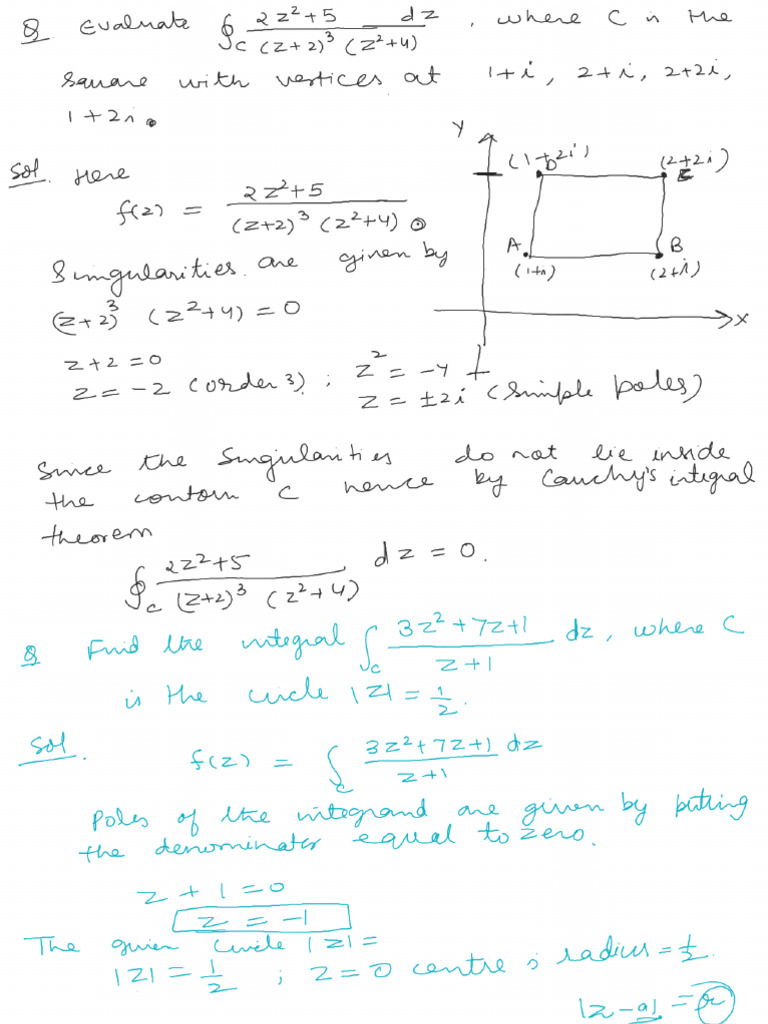 Q Evaluate ∮_C (2z²+5)/((z+2)³ (z²+4)) dz, where C is the
square with vertices at 1+i, 2+i, 2+2i,
1+2i.
Sol. Here
f(z) = (2z²+5)/((z+2)³ (z²+4)).
Y
(1+2i) D
(2+2i)
A
(1+i)
B
(2+i)
X
Singularities are given by
(z+2)³ (z²+4) = 0
z+2 = 0
z = -2 (order 3) ; z² = -4
z = ±2i (simple poles)
Since the singularities do not lie inside
the contour C hence by Cauchy's integral
theorem
∮_C (2z²+5)/((z+2)³ (z²+4)) dz = 0.
Q Find the integral ∫_C (3z²+7z+1)/(z+1) dz, where C
is the circle |z| = 1/2.
Sol. f(z) = ∫_C (3z²+7z+1)/(z+1) dz
Poles of the integrand are given by putting
the denominator equal to zero.
z + 1 = 0
z = -1
The given circle |z| =
|z| = 1/2 ; z = 0 centre ; radius = 1/2.
|z-a| = r